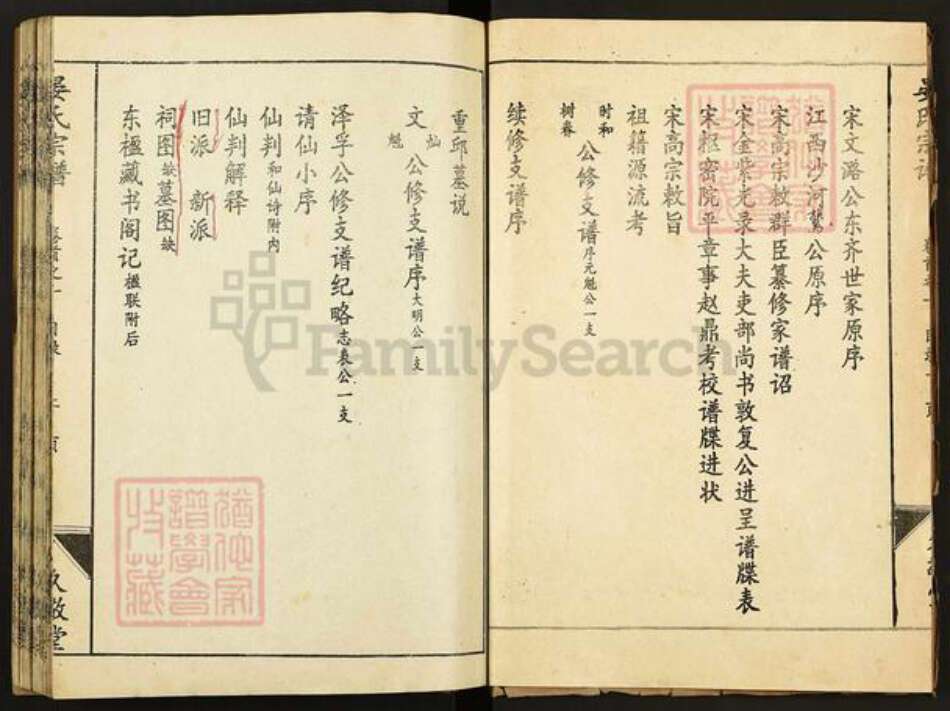 宋文潞公东齐世家原序
江西沙河鷟公原序
宋高宗敕群臣纂修家谱诏
宋金紫光录大夫吏部尚书敦复公进呈谱牒表
宋枢密院平章事赵鼎考校谱牒进状
宋高宗敕旨
祖籍源流考
时和 树春 公修支谱序元魁公一支
续修支谱序
重邱墓说
文灿 魁 公修支谱序大明公一支
泽孚公修支谱纪略志表公一支
请仙小序
仙判和仙诗附内
仙判解释
旧派 新派
祠图缺墓图缺
东楹藏书阁记楹联附后
晏氏宗谱
久敬堂
FamilySearch